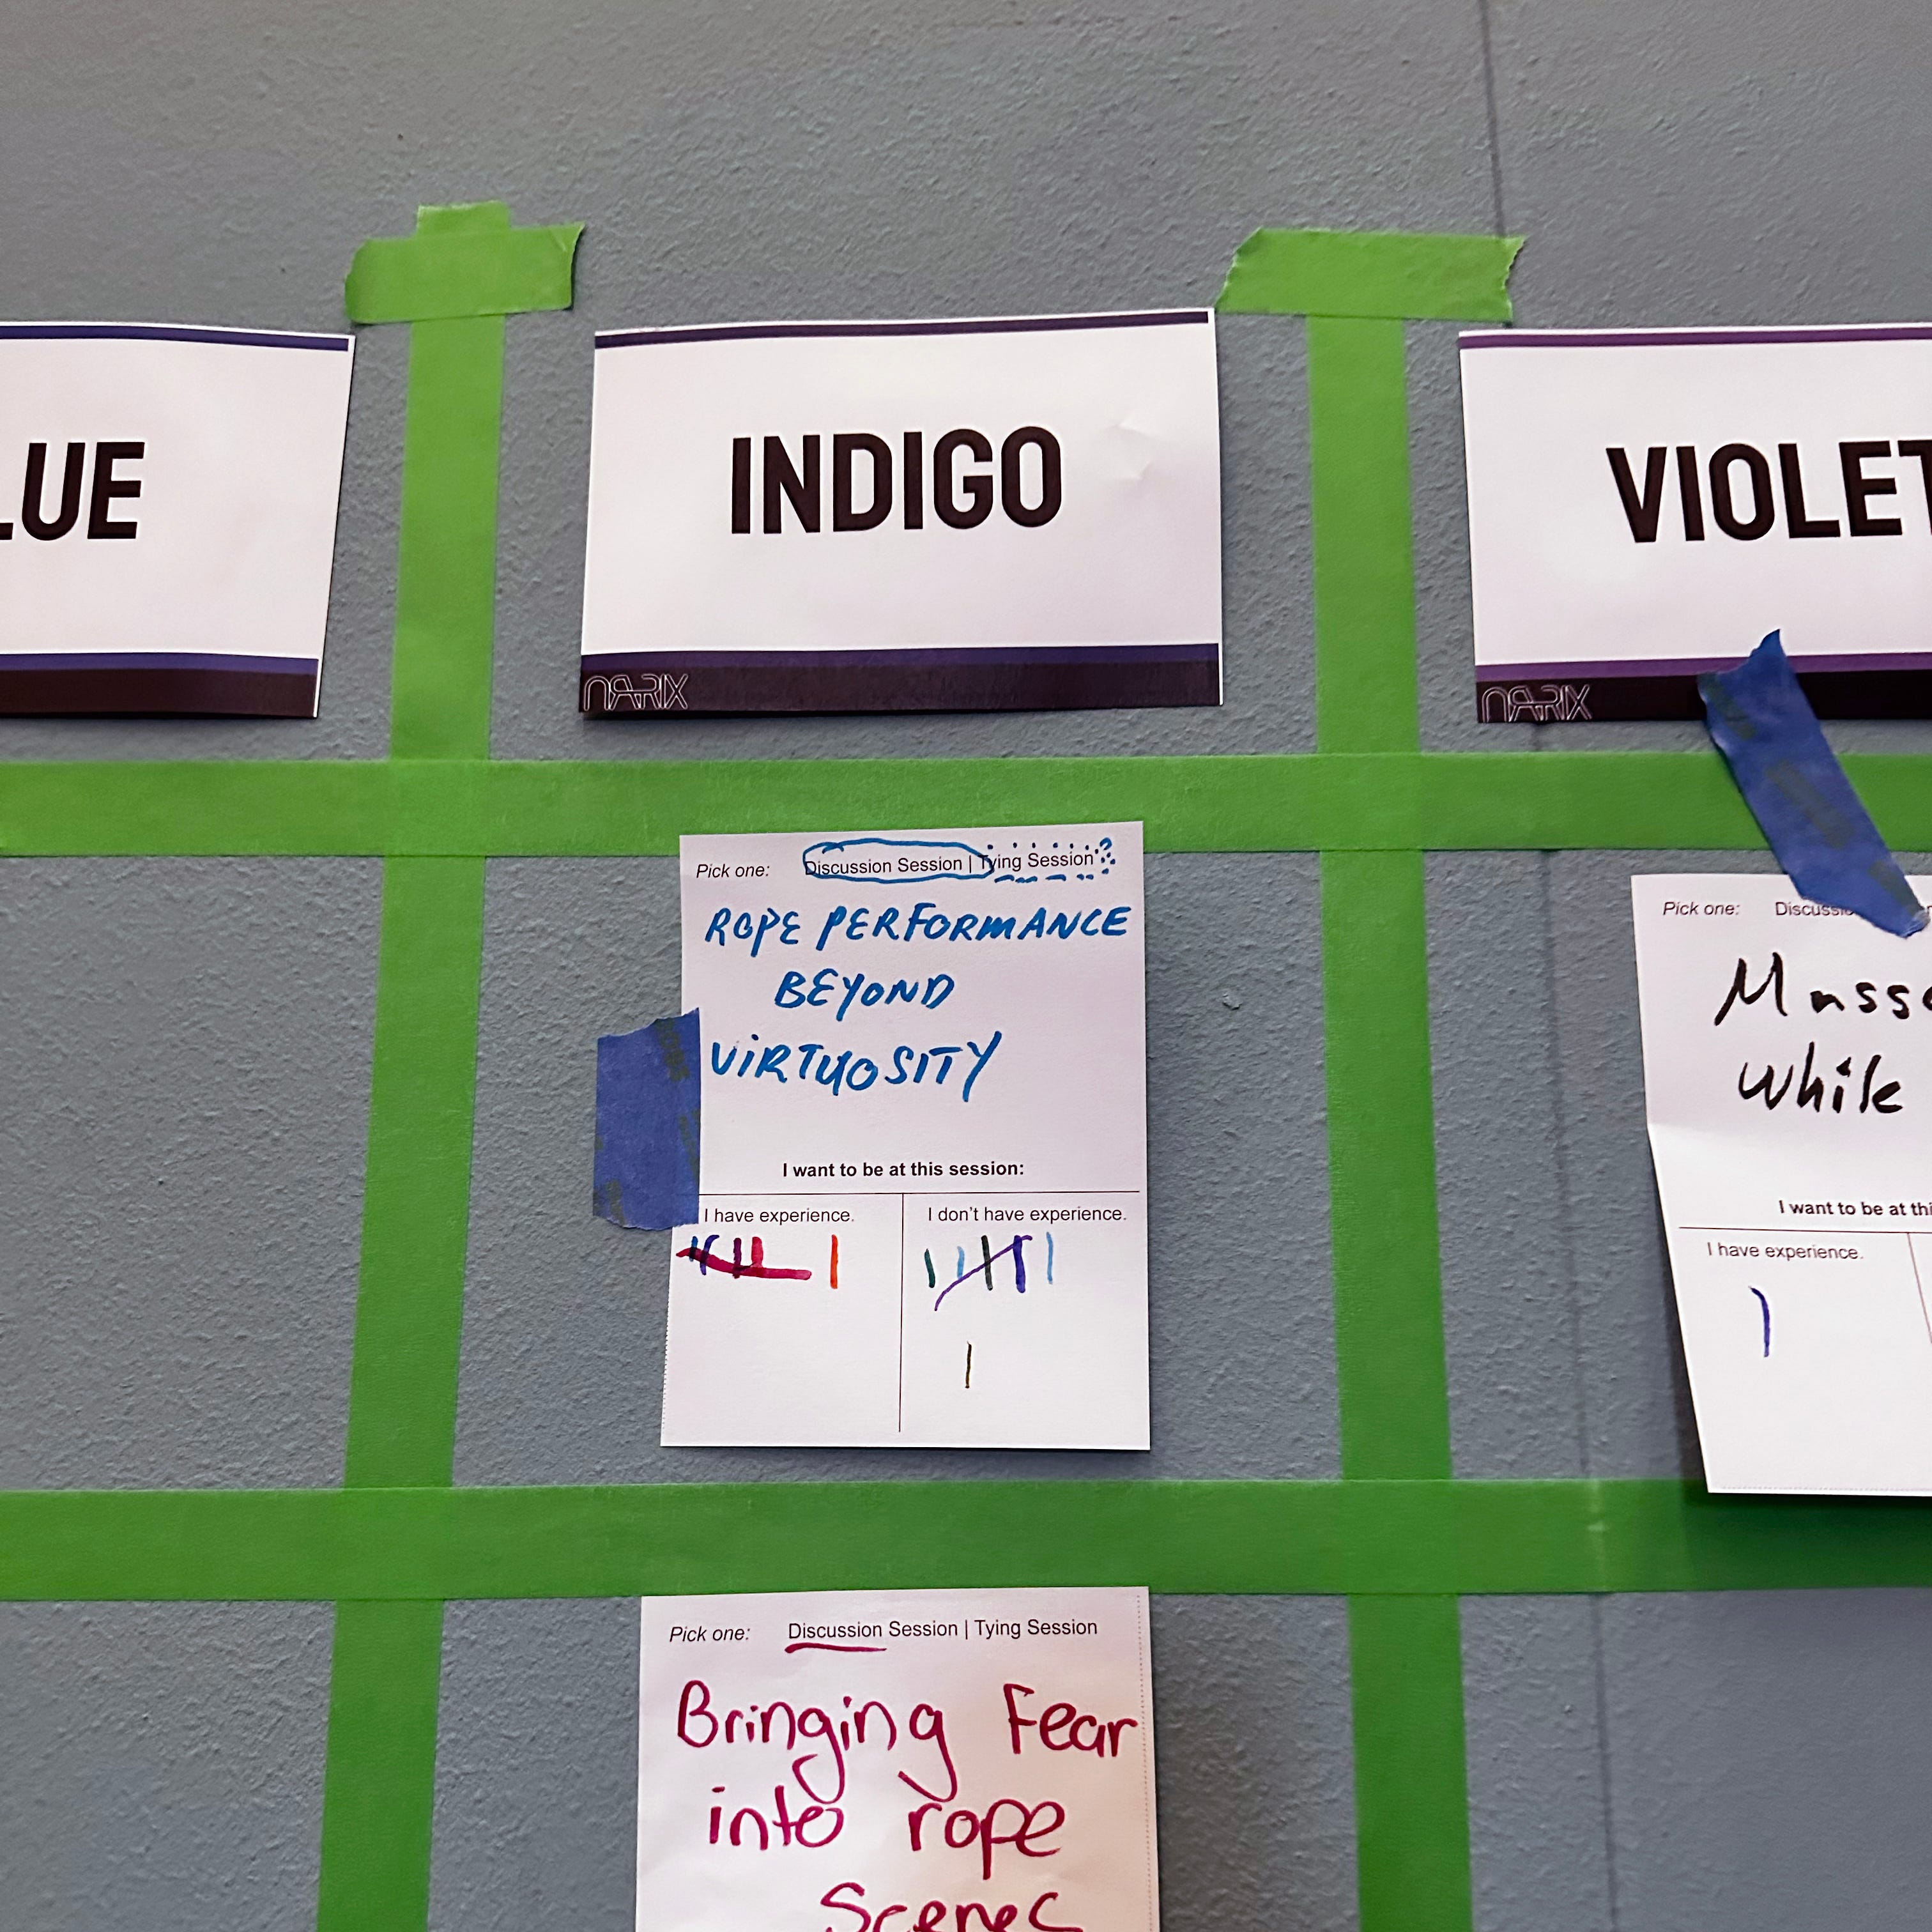 LUE
INDIGO
VIOLET
NARIX
NARIX
Pick one: Discussion Session | Tying Session?
ROPE PERFORMANCE
BEYOND
VIRTUOSITY
I want to be at this session:
I have experience. I don't have experience.
Pick one:
While
I want to be at thi
I have experience.
Pick one: Discussion Session | Tying Session
Bringing Fear
into rope
Scenes